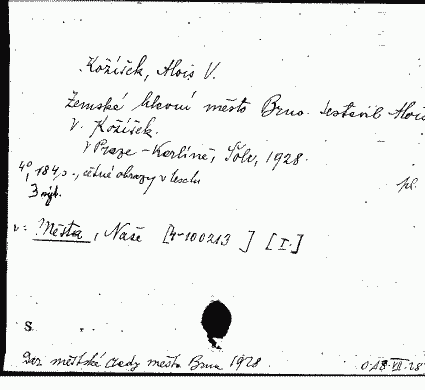 Kožíšek, Alois V.
Zemské hlavní město Brno. Sestavil Alois
V. Kožíšek.
V Praze-Karlíně, Šolc, 1928.
4°, 184 s., četné obrazy v textu
3 mp. pl.
v: Města, Naše [4-100213 ] [I.]
S
Dar městské rady města Brna 1928 018.VII.28